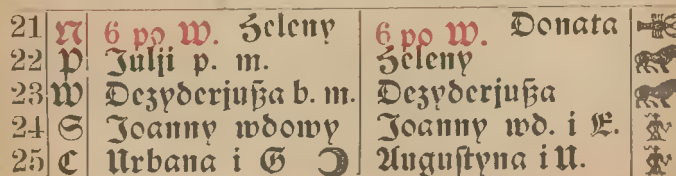 21 N 6 po W. Heleny 6 po W. Donata
22 P Julji p. m. Heleny
23 W Dezyderjuſza b. m. Dezyderjuſza
24 S Joanny wdowy Joanny wd. i E.
25 C Urbana i G ☽ Auguſtyna i U.